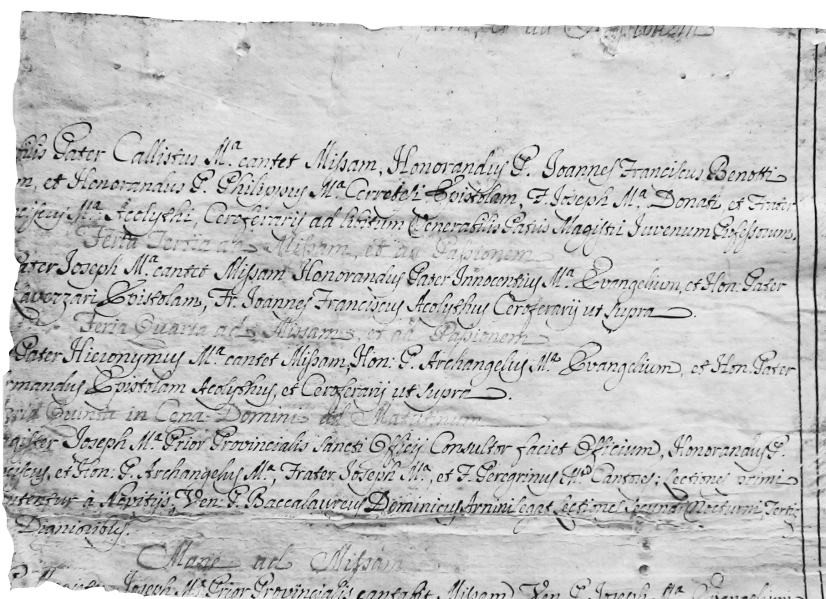 et ad Passionem
Pater Callistus M.ª cantet Missam, Honorandus P. Joannes Franciscus Benotti
m, et Honorandus P. Philippus M.ª Epistolam, F. Joseph M.ª Donati, et Frater
ciscus M.ª Acolythi, Ceroferarij ad libitum Venerabilis Patris Magistri Iuvenum Professorum.
Feria Tertia ad Missam, et ad Passionem
ater Joseph M.ª cantet Missam Honorandus Pater Innocentius M.ª Evangelium, et Hon: Pater
Epistolam, Fr. Joannes Franciscus Acolythus Ceroferarij ut supra.
Feria Quarta ad Missam, et ad Passionem
Pater Hieronymus M.ª cantet Missam, Hon: P. Archangelus M.ª Evangelium, et Hon: Pater
rmandus Epistolam Acolythus, et Ceroferarij ut supra.
eria Quinta in Cena Domini ad Matutinum
agister Joseph M.ª Prior Provincialis Sancti Officij Consultor faciet Officium, Honorandus P.
ciscus, et Hon: P. Archangelus M.ª, Frater Joseph M.ª, et F. Peregrinus M.ª Cantores; Lectiones primi
à Novitijs, Ven: P. Baccalaureus Dominicus legat Lectiones Secundi Nocturni, Tertij
Dignioribus.
Mane ad Missam
Joseph M.ª Prior Provincialis cantabit Missam, Ven: P. Joseph M.ª Evangelium